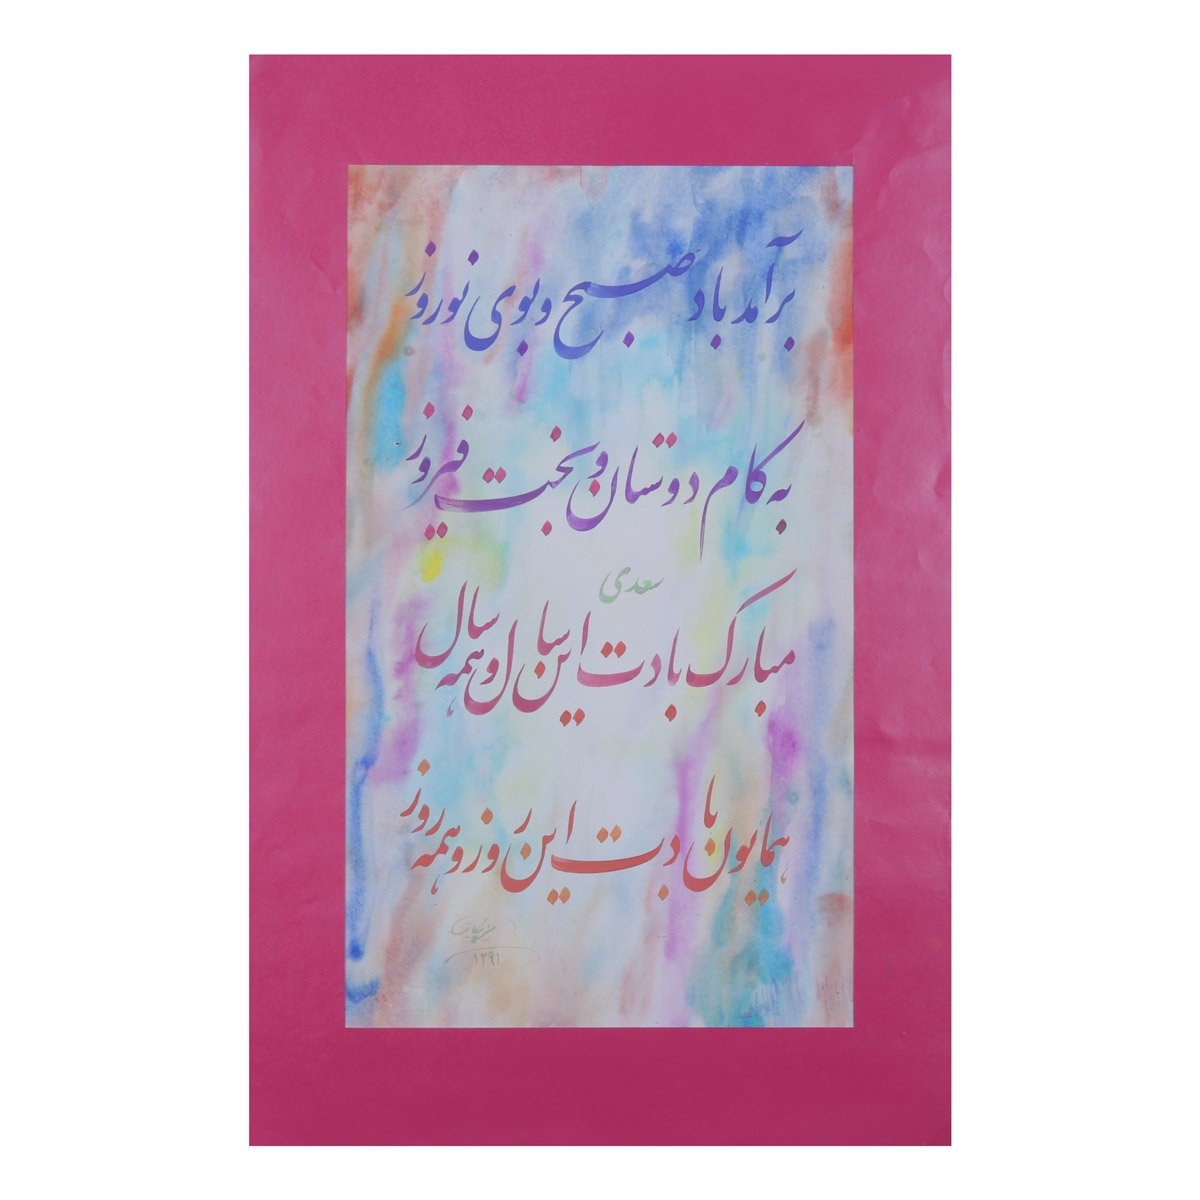 برآمد باد صبح و بوی نوروز
به کام دوستان و بخت فیروز
سعدی
مبارک بادت این سال و همه سال
همایون بادت این روز و همه روز
۱۳۹۱